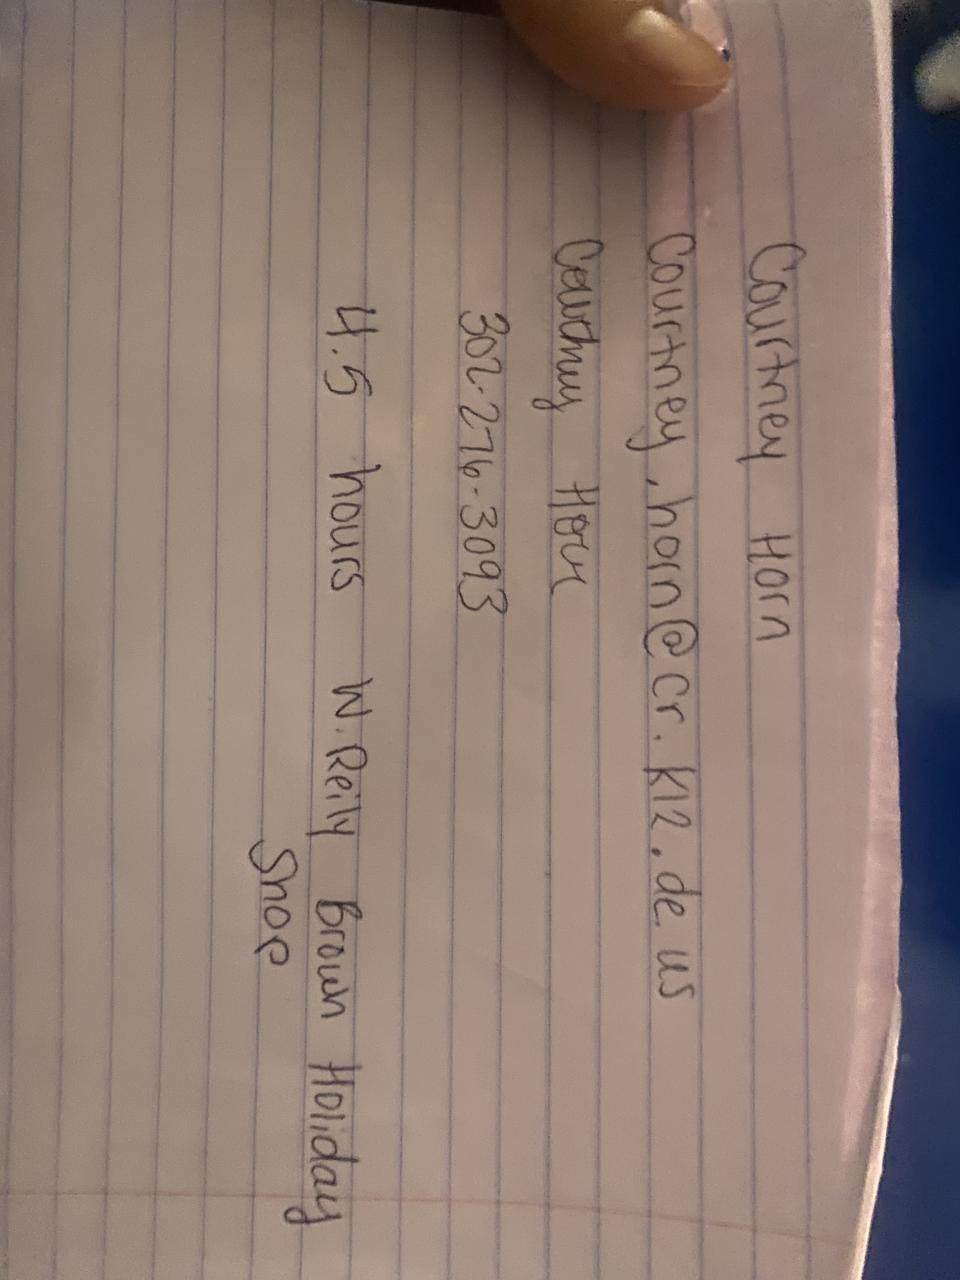 Courtney Horn
Courtney.horn@cr.k12.de.us
Courtney Horn
302-276-3093
4.5 hours W. Reily Brown Holiday
Shop